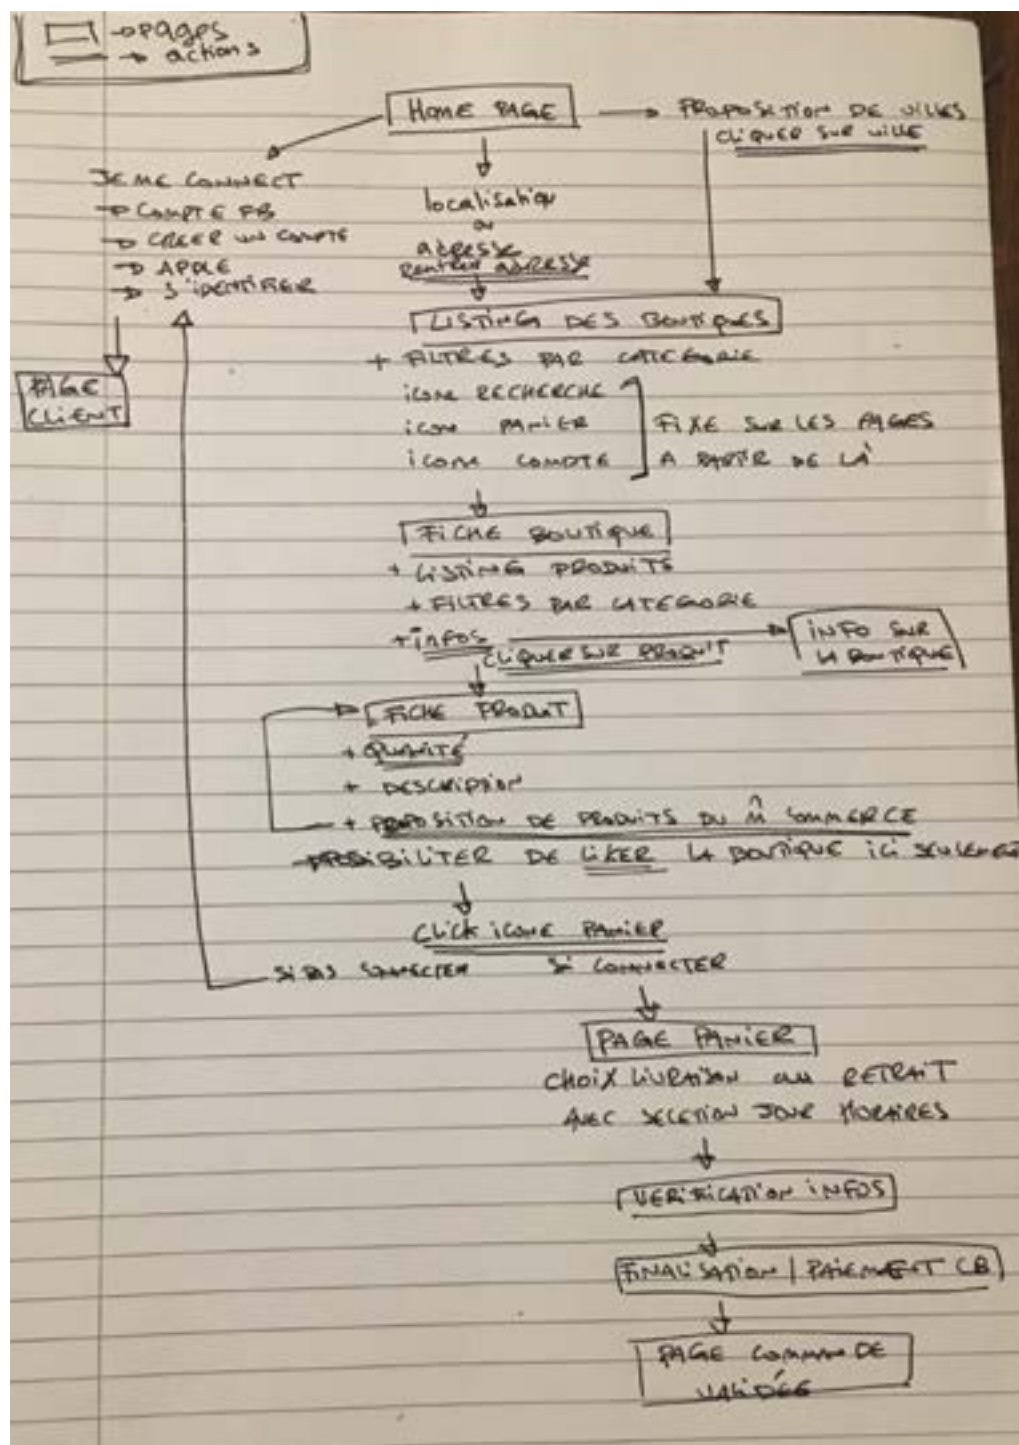 → pages
→ actions
HOME PAGE
→ PROPOSITION DE VILLES
CLIQUER SUR VILLE
JE ME CONNECT
→ COMPTE FB
→ CREER UN COMPTE
→ APPLE
→ S'IDENTIFIER
localisation
ou
adresse
RENTRER ADRESSE
PAGE
CLIENT
LISTING DES BOUTIQUES
+ FILTRES PAR CATEGORIE
icone RECHERCHE
icone PANIER
icone COMPTE
FIXE SUR LES PAGES
A PARTIR DE LÀ
FICHE BOUTIQUE
+ LISTING PRODUITS
+ FILTRES PAR CATEGORIE
+ INFOS
CLIQUER SUR PRODUIT
INFO SUR
LA BOUTIQUE
FICHE PRODUIT
+ QUANTITÉ
+ DESCRIPTION
+ PROPOSITION DE PRODUITS DU M̂ COMMERCE
POSSIBILITER DE LIKER LA BOUTIQUE ICI SEULEMENT
CLICK ICONE PANIER
SI PAS CONNECTER
SI CONNECTER
PAGE PANIER
CHOIX LIVRAISON OU RETRAIT
AVEC SELETION JOUR HORAIRES
VERIFICATION INFOS
FINALISATION | PAIEMENT CB
PAGE COMMANDE
VALIDÉE